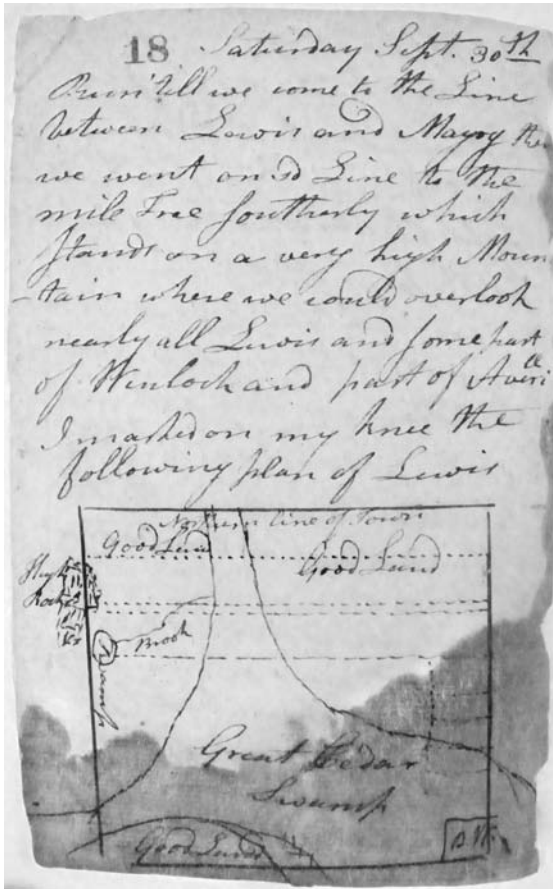 18 Saturday Sept. 30th
Run till we come to the Line
between Lewis and Magog then
we went on sd Line to the
mile Tree Southerly which
Stands on a very high Moun
-tain where we could overlook
nearly all Lewis and some part
of Winlock and part of Averill
I marked on my knee the
following plan of Lewis
Northern line of Town
Good Land
Good Land
High
Rocks
Brook
Swamp
Great Cedar
Swamp
Good Land